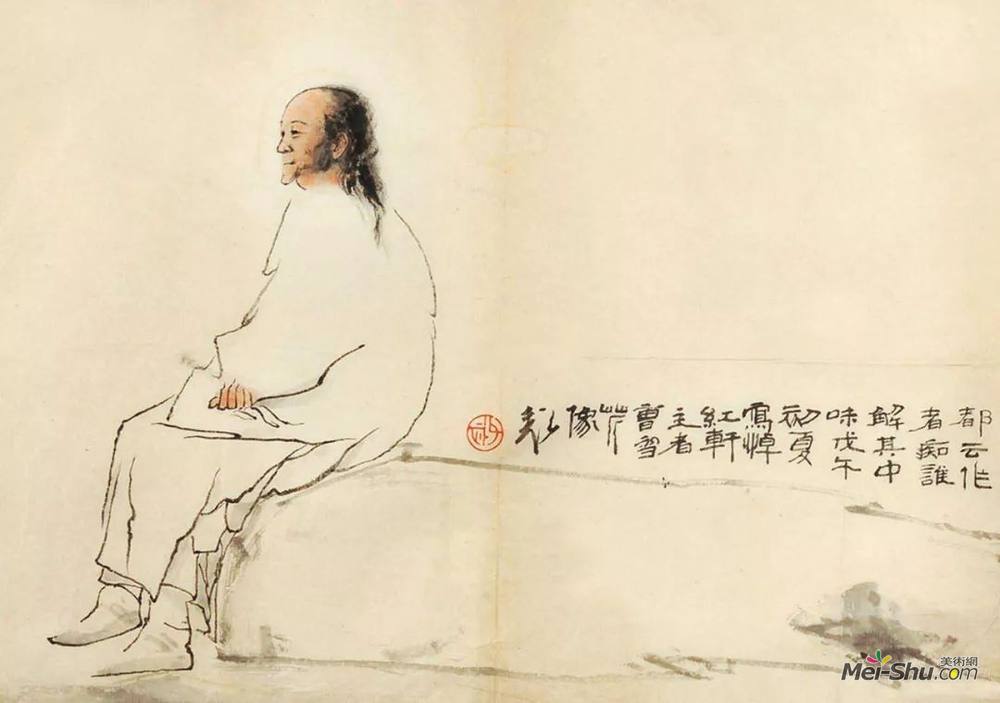 都云作
者痴誰
解其中
味戊午
初夏
寫悼
紅軒
主者
曹雪
芹
像
美術網
Mei-Shu.com